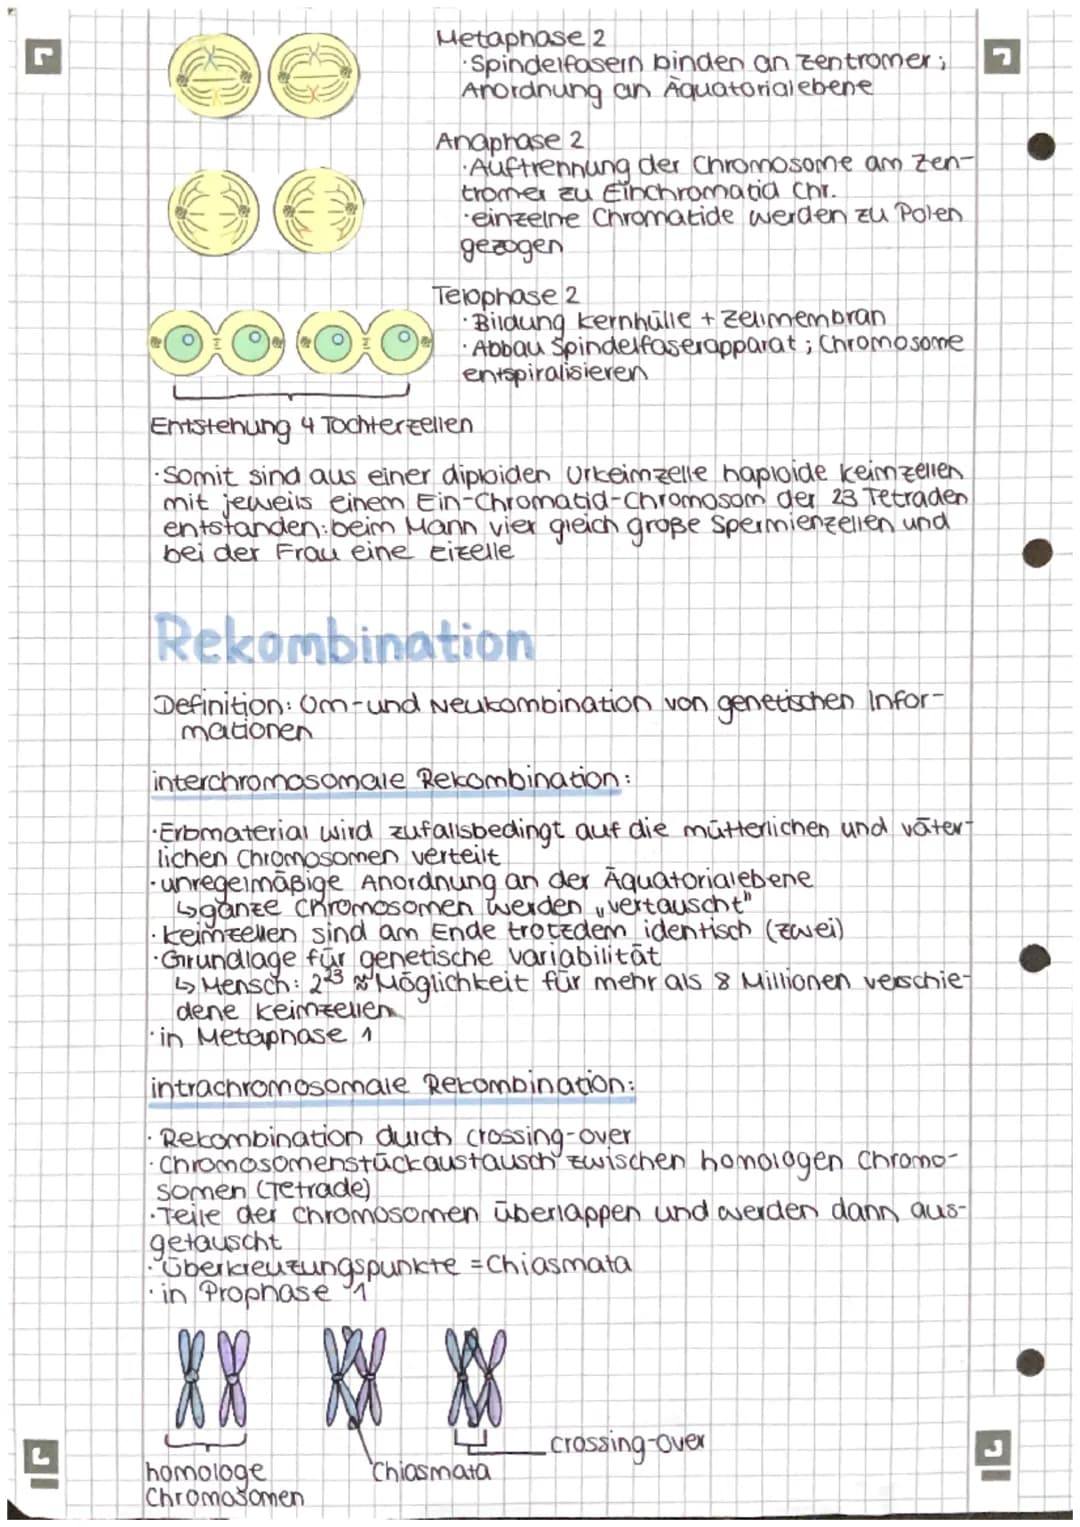 Metaphase 2
·Spindelfasern binden an Zentromer;
Anordnung an Äquatorialebene
Anaphase 2
·Auftrennung der Chromosome am Zen-
tromer zu Einchromatid Chr.
·einzelne Chromatide werden zu Polen
gezogen
Telophase 2
·Bildung Kernhülle + Zellmembran
·Abbau Spindelfaserapparat; Chromosome
entspiralisieren
Entstehung 4 Tochterzellen
·Somit sind aus einer diploiden Urkeimzelle haploide Keimzellen
mit jeweils einem Ein-Chromatid-Chromosom der 23 Tetraden
entstanden: beim Mann vier gleich große Spermienzellen und
bei der Frau eine Eizelle
Rekombination
Definition: Um-und Neukombination von genetischen Infor-
mationen
interchromosomale Rekombination:
·Erbmaterial wird zufallsbedingt auf die mütterlichen und väter-
lichen Chromosomen verteilt
·unregelmäßige Anordnung an der Äquatorialebene
↳ganze Chromosomen werden „vertauscht"
·Keimzellen sind am Ende trotzdem identisch (zwei)
·Grundlage für genetische Variabilität
↳Mensch: 2²³ ≈ Möglichkeit für mehr als 8 Millionen verschie-
dene Keimzellen
·in Metaphase 1
intrachromosomale Rekombination:
·Rekombination durch crossing-over
·Chromosomenstückaustausch zwischen homologen Chromo-
somen (Tetrade)
·Teile der Chromosomen überlappen und werden dann aus-
getauscht
·Überkreuzungspunkte = Chiasmata
·in Prophase 1
crossing-over
homologe Chiasmata
Chromosomen